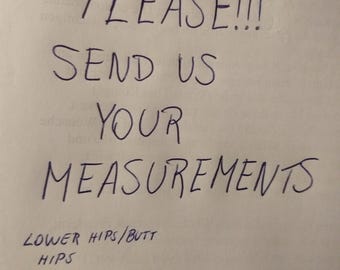 PLEASE!!!
SEND US
YOUR
MEASUREMENTS
LOWER HIPS/BUTT
HIPS